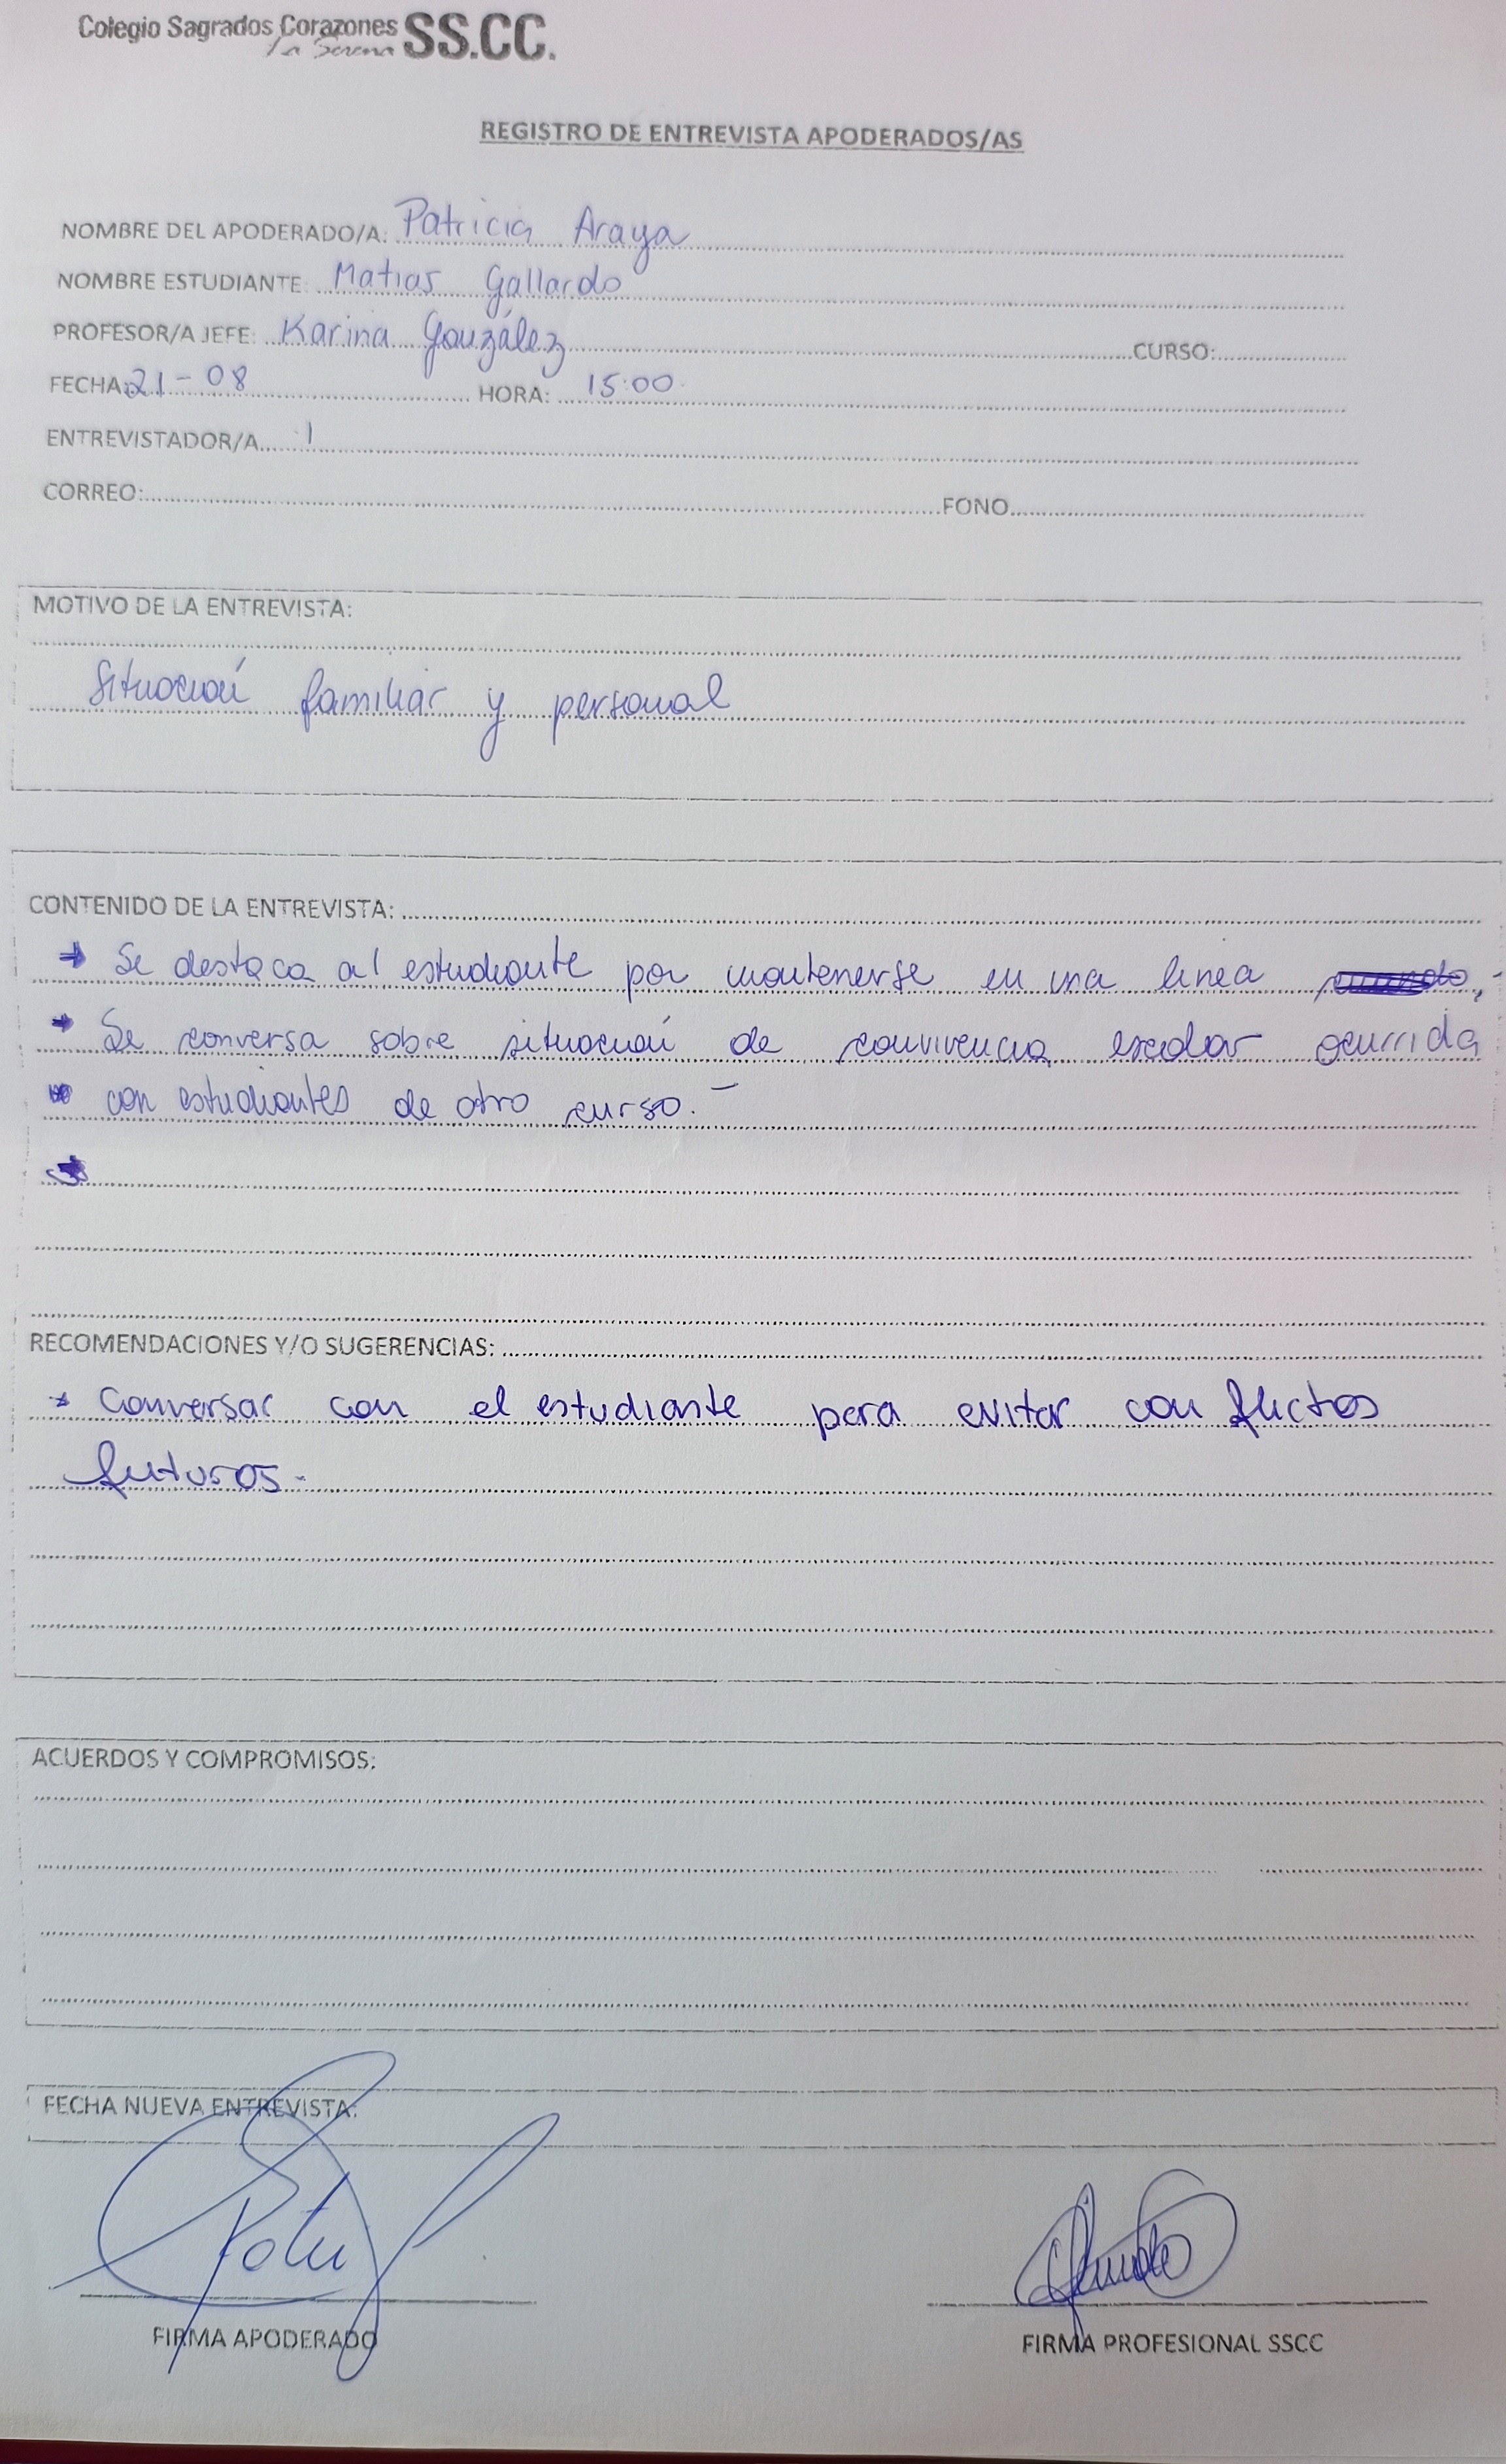 Colegio Sagrados Corazones SS.CC.
La Serena
REGISTRO DE ENTREVISTA APODERADOS/AS
NOMBRE DEL APODERADO/A: Patricia Araya
NOMBRE ESTUDIANTE: Matias Gallardo
PROFESOR/A JEFE: Karina González CURSO:
FECHA: 21-08 HORA: 15:00
ENTREVISTADOR/A
CORREO: FONO
MOTIVO DE LA ENTREVISTA:
Situación familiar y personal
CONTENIDO DE LA ENTREVISTA:
→ Se destaca al estudiante por mantenerse en una linea
→ Se conversa sobre situación de convivencia escolar ocurrida
con estudiantes de otro curso.-
RECOMENDACIONES Y/O SUGERENCIAS:
* Conversar con el estudiante para evitar conflictos
futuros.-
ACUERDOS Y COMPROMISOS:
FECHA NUEVA ENTREVISTA:
FIRMA APODERADO FIRMA PROFESIONAL SSCC